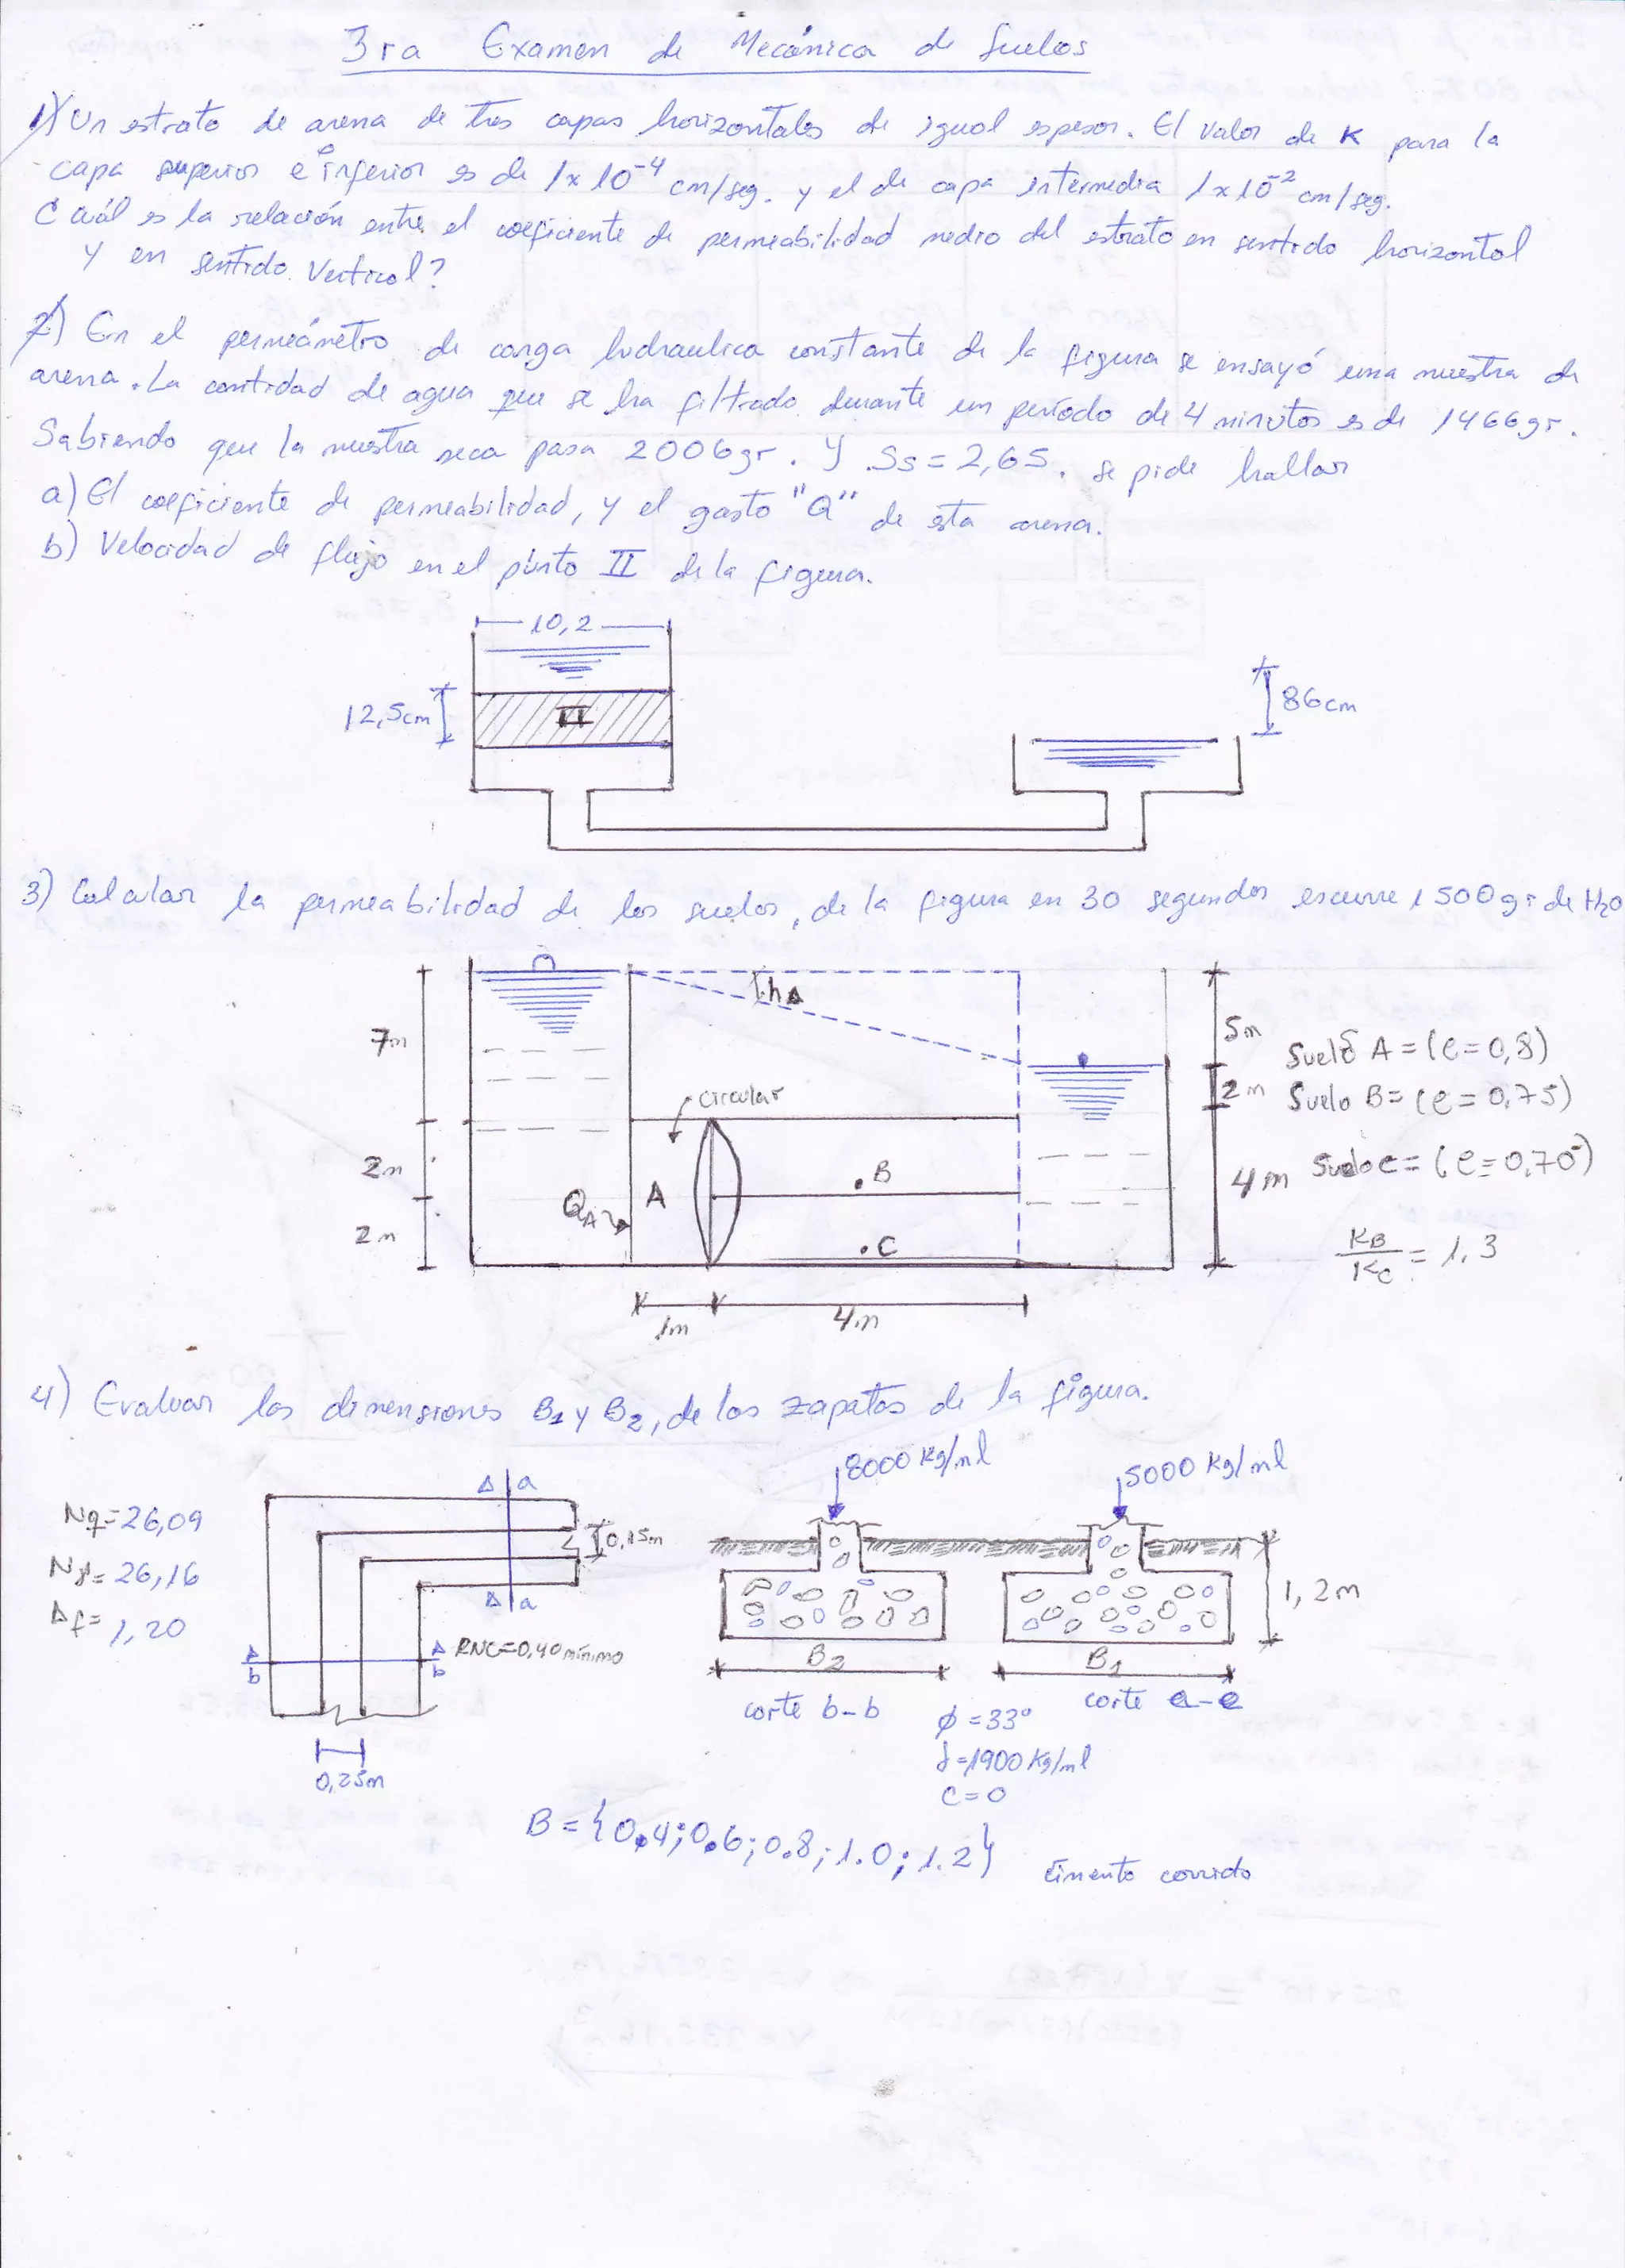 3ra Examen de Mecánica de Suelos
1) Un estrato de arena de tres capas horizontales de igual espesor. El valor de K para la
capa superior e inferior es de 1x10⁻⁴ cm/seg. y el de capa intermedia 1x10⁻² cm/seg.
Cuál es la relación entre el coeficiente de permeabilidad medio del estrato en sentido horizontal
y en sentido vertical?
2) En el permeámetro de carga hidraulica constante de la figura se ensayó una muestra de
arena. La cantidad de agua que se ha filtrado durante un período de 4 minutos es de 1466gr.
Sabiendo que la muestra seca pasa 2006gr. y Ss=2,65. se pide hallar
a) El coeficiente de permeabilidad, y el gasto "Q" de esta arena.
b) Velocidad de flujo en el punto II de la figura.
10,2
12,5cm
II
86cm
3) Calcular la permeabilidad de los suelos, de la figura en 30 segundos escurre 1500gr de H₂O
hΔ
7m
5m
Suelo A = (e=0,8)
2m
Suelo B = (e=0,75)
circular
2m
B
4m
Suelo c = (e=0,70)
QA
A
2m
C
KB/KC = 1.3
1m
4m
4) Evaluar las dimensiones B1 y B2, de las zapatas de la figura.
8000 Kg/ml
5000 Kg/ml
Δ a
Nq=26,09
0,15m
Nγ=26,16
1,2m
Δ a
Df=1,20
RNC=0,40 mínimo
Δ b
Δ b
B2
B1
corte b-b
corte a-a
ϕ=33°
γ=1900 Kg/ml
0,25m
C=0
B={0.4;0.6;0.8;1.0;1.2}
cimento corrido